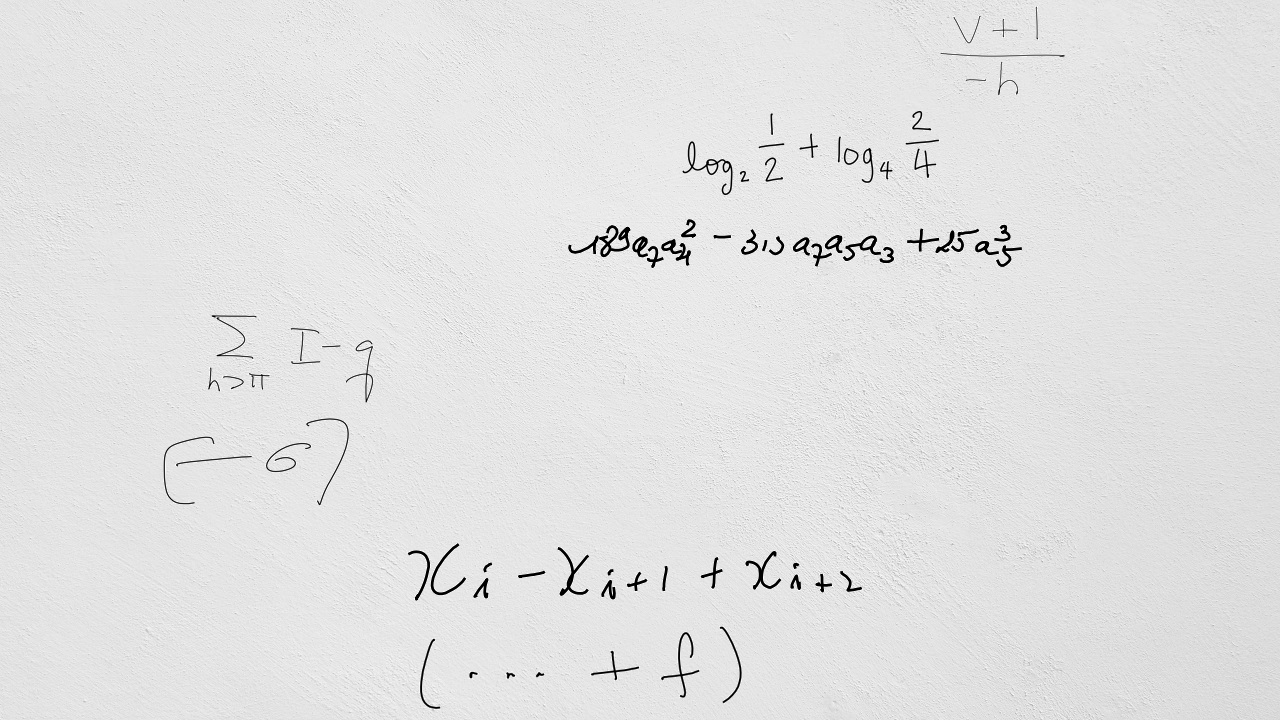 \frac{v+1}{-h}
\log_2 \frac{1}{2} + \log_4 \frac{2}{4}
189a_7a_4^2 - 315a_7a_5a_3 + 25a_5^3
\sum_{h>\pi} I-q
(-\sigma)
x_i - x_{i+1} + x_{i+2}
(\cdots + f)